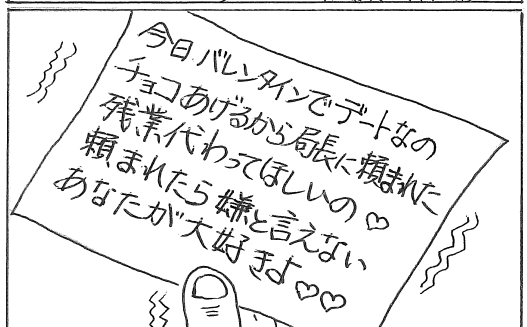 今日バレンタインでデートなの
チョコあげるから局長に頼まれた
残業代わってほしいの♡
頼まれたら嫌と言えない
あなたが大好きよ♡♡